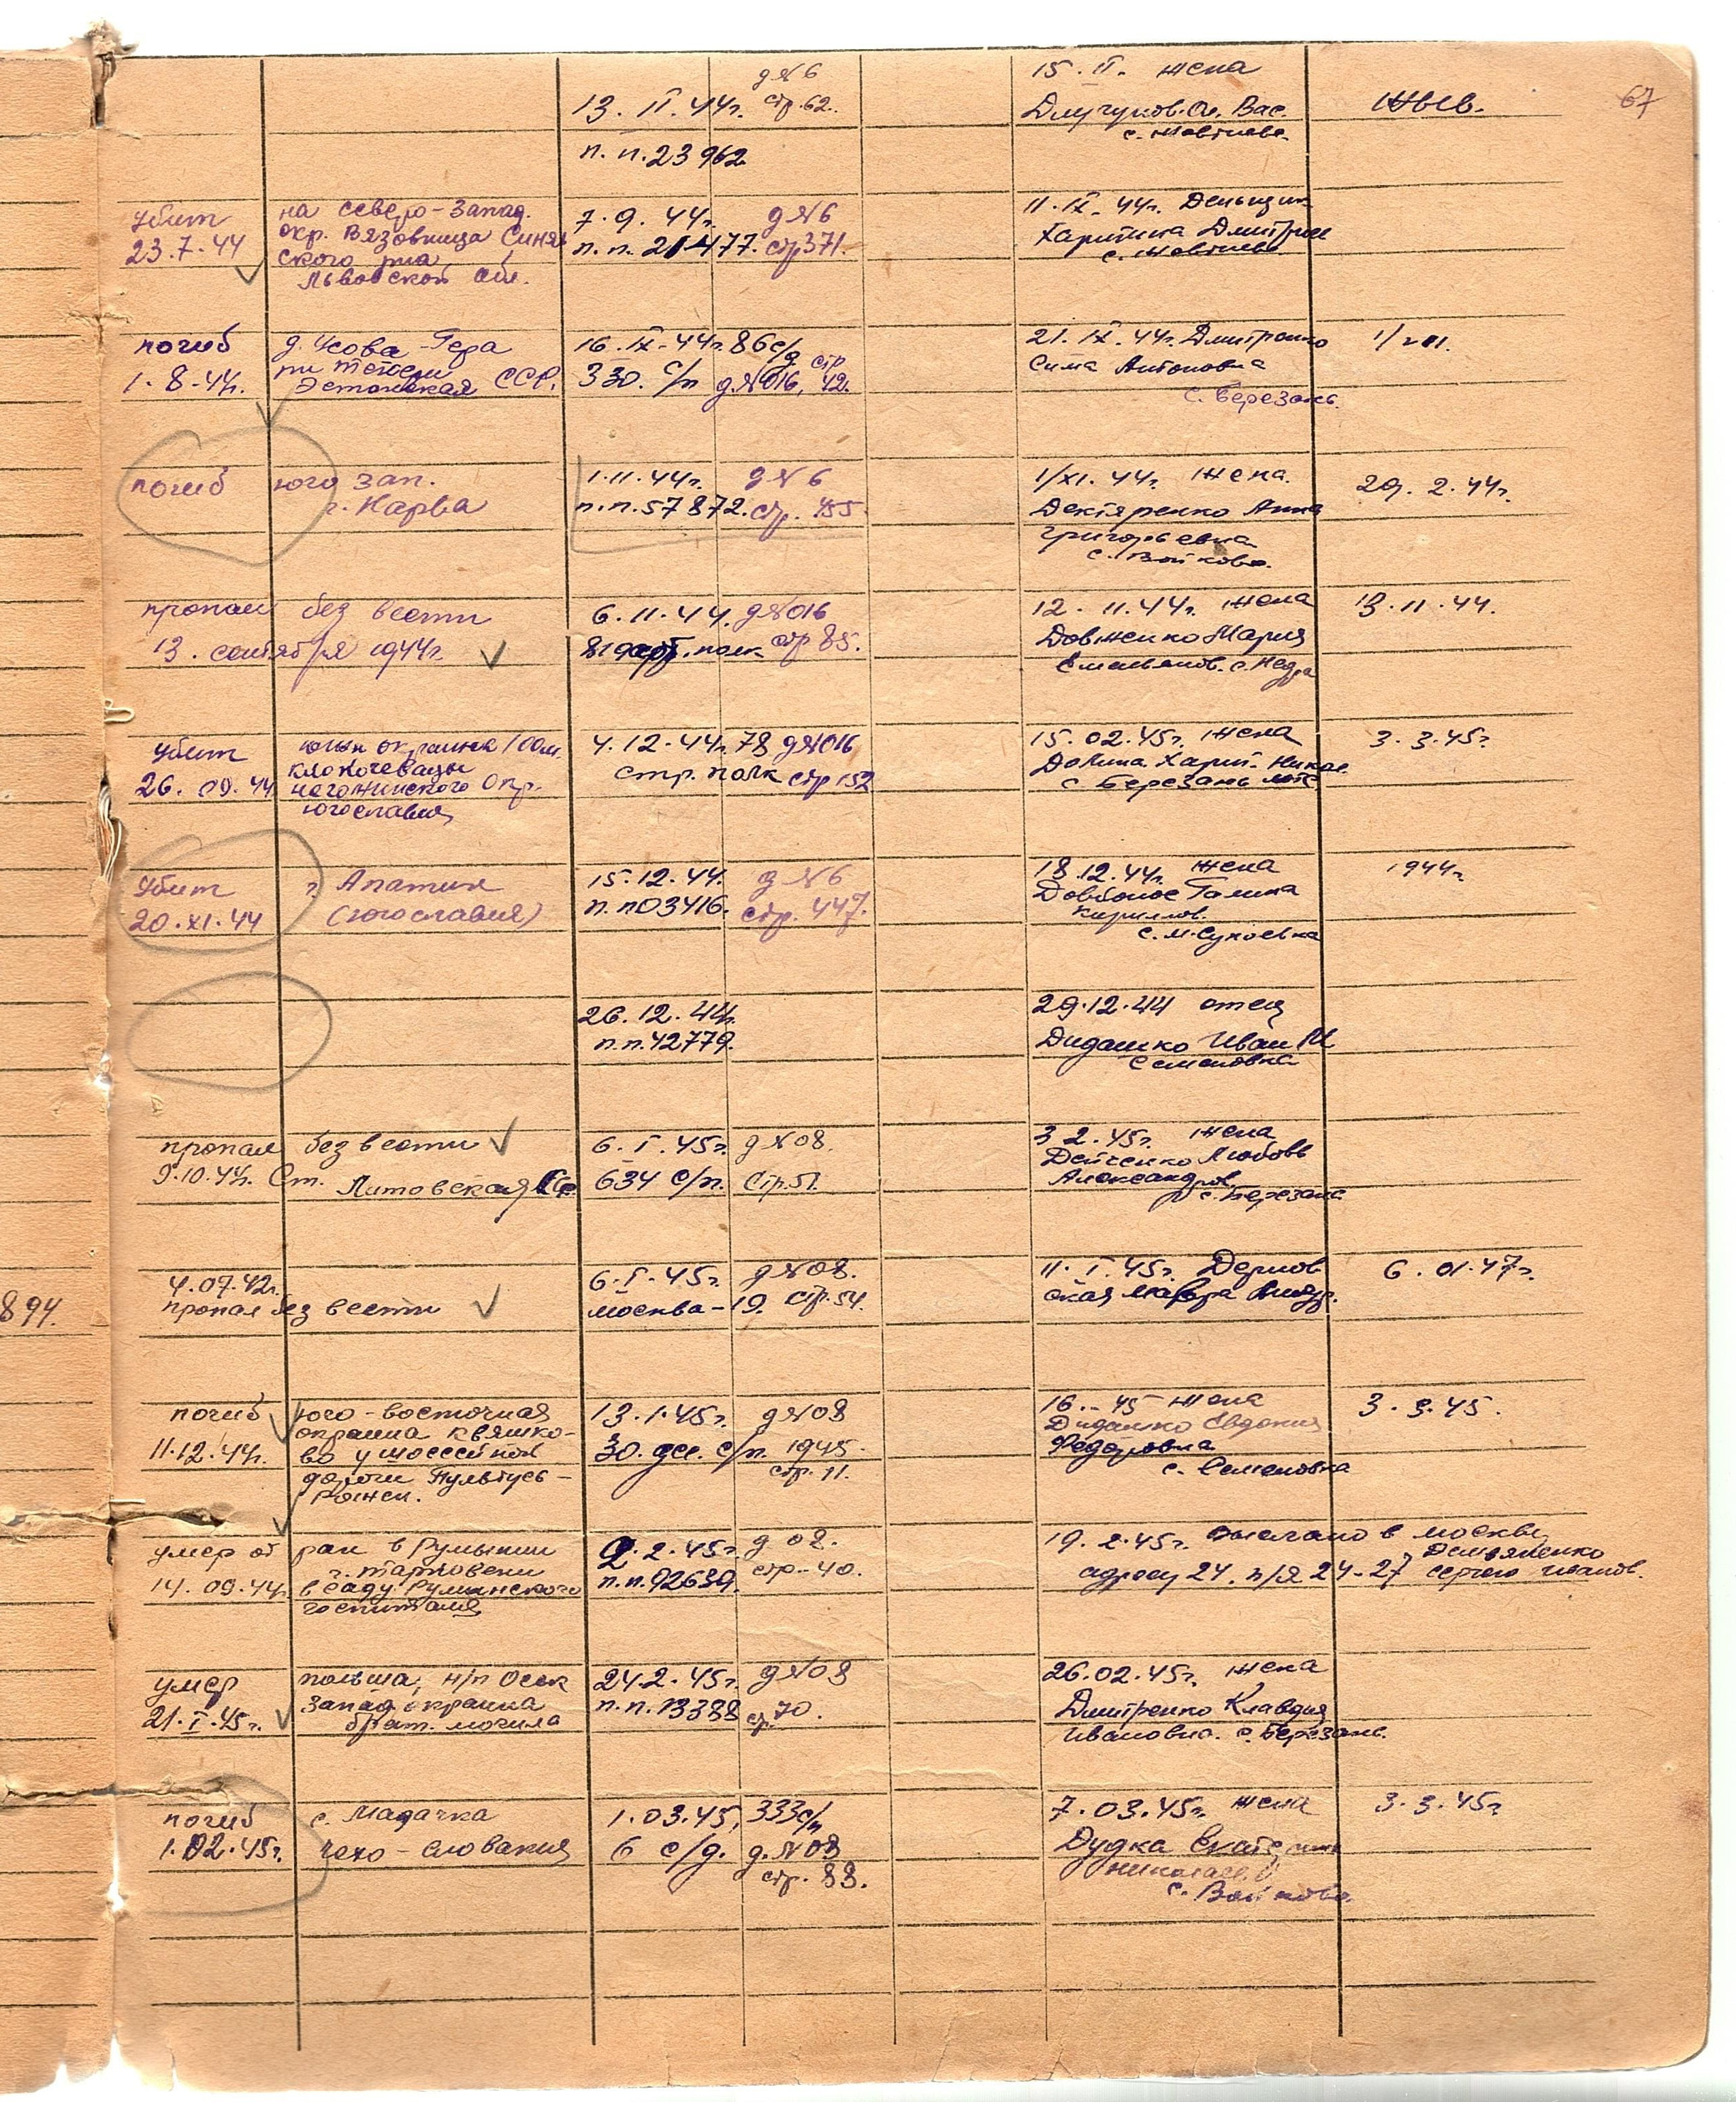 67
д № 6
13. II. 44г. стр. 62.
п. п. 23962
15. II. жена
Вас.
жив.
убит
23.7.44
на северо-запад.
окр. Вязовница Синяв
ского р-на
Львовской обл.
7. 9. 44г. д № 6
п. п. 21477. стр 371.
11. IX. 44г. Денщик
Харитина Дмитрие
погиб
1. 8. 44г.
д. Усова-Гера
Эстонская ССР.
16. IX. 44г. 86 с/д
330. с/п д. № 016, стр 42.
21. IX. 44г. Дмитренко
Сима Антоновна
с. Березань.
погиб
юго зап.
г. Нарва
1.11.44г. д № 6
п. п. 57872. стр. 455
1/XI. 44г. жена.
Дектяренко Анна
Григорьевна
с. Войково.
29. 2. 44г.
пропал без вести
13. сентября 1944г.
6. 11. 44. д № 016
арт. полк стр 85.
12. 11. 44г. жена
Довженко Мария
Емельянов. с. Недра
13. 11. 44.
убит
26. 09. 44
южн окраина 100м.
клокочевацы
неготинского окр.
югославия
4. 12. 44г. 78 д № 016
стр. полк стр 152
15. 02. 45г. жена
Долина Харит. Никол.
с. Березань
3. 3. 45г.
убит
20. XI. 44
г. Апатин
(югославия)
15. 12. 44. д № 6
п. п 03416. стр. 447.
18. 12. 44г. жена
Довбонос Галина
Кириллов.
с. М. Супоевка
1944г.
26. 12. 44г.
п. п. 42779.
29. 12. 44 отец
Дидашко Иван М
Семеновка
пропал без вести
9. 10. 44г. Ст.
Литовская ССР.
6. I. 45г. д № 08.
634 с/п. Стр. 51.
3 2. 45г. жена
Дейченко Любовь
Александров.
с. Березань
894.
4. 07. 42г.
пропал без вести
6. I. 45г. д № 08.
москва-19. стр. 54.
11. I. 45г. Дернов
ская Мавра Андр.
6. 01. 47г.
погиб
11. 12. 44г.
юго-восточная
окраина квяшко-
во у шоссейной
дороги Пультусь-
Рожен.
13. 1. 45г. д № 08
30. с/п. 1945.
стр. 11.
16. - 45 жена
Дидашко Евдокия
Федоровна
с. Семеновка
3. 3. 45.
умер от ран в Румынии
14. 09. 44г.
в саду Румынского
госпиталя
2. 2. 45г. д 08.
п. п. 92639. стр-40.
19. 2. 45г. выслано в москву
адресу 24. п/я 24-27
Демяненко
Сергею Иванов.
умер
21. I. 45г.
польша, н/п Осек
запад. окраина
брат. могила
24. 2. 45г. д № 08
п. п. 13388 ст. 70.
26. 02. 45г. жена
Дмитренко Клавдия
Ивановна. с. Березань.
погиб
1. 02. 45г.
с. Мадачка
чехо-словакия
1. 03. 45, 333 с/п
6 с/д. д. № 08
стр. 88.
7. 03. 45г. жена
Дудка Екатерина
Николаев.
с. Войково.
3. 3. 45г